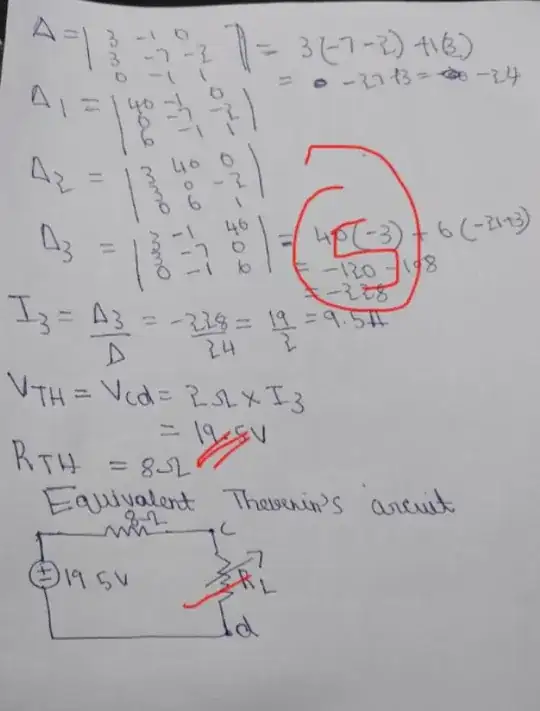 Δ = | 3 -1 0 | = 3(-7-2) +1(3)
3 -7 -2
0 -1 1
= -27+3 = -24
Δ1 = | 40 -1 0 |
0 -7 -2
6 -1 1
Δ2 = | 3 40 0 |
3 0 -2
0 6 1
Δ3 = | 3 -1 40 | = 40(-3) + 6(-21+3)
3 -7 0
0 -1 6
= -120 - 108
= -228
I3 = Δ3/Δ = -228/24 = 19/2 = 9.5A
VTH = Vcd = 2Ω × I3
= 19.5V
RTH = 8Ω
Equivalent Thevenin's circuit
8Ω
c
19.5V
RL
d